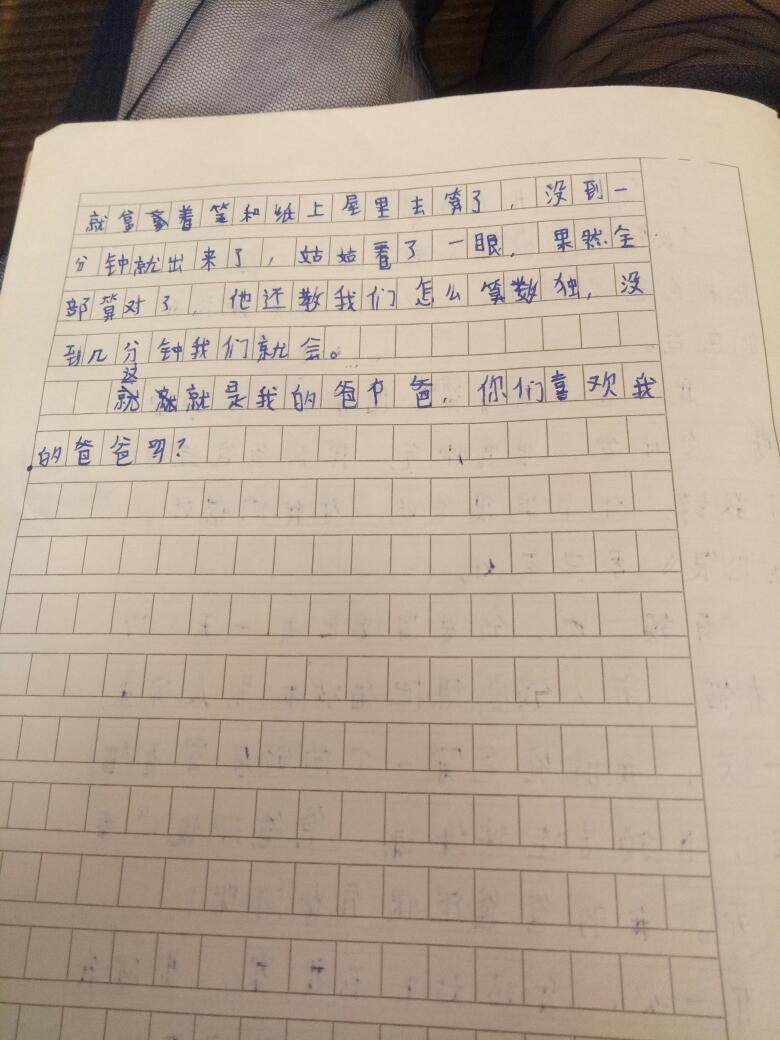 就拿着笔和纸上屋里去算了，没到一
分钟就出来了，姑姑看了一眼，果然全
部算对了，他还教我们怎么算数独，没
到几分钟我们就会。
这就是我的爸爸，你们喜欢我
的爸爸吗？